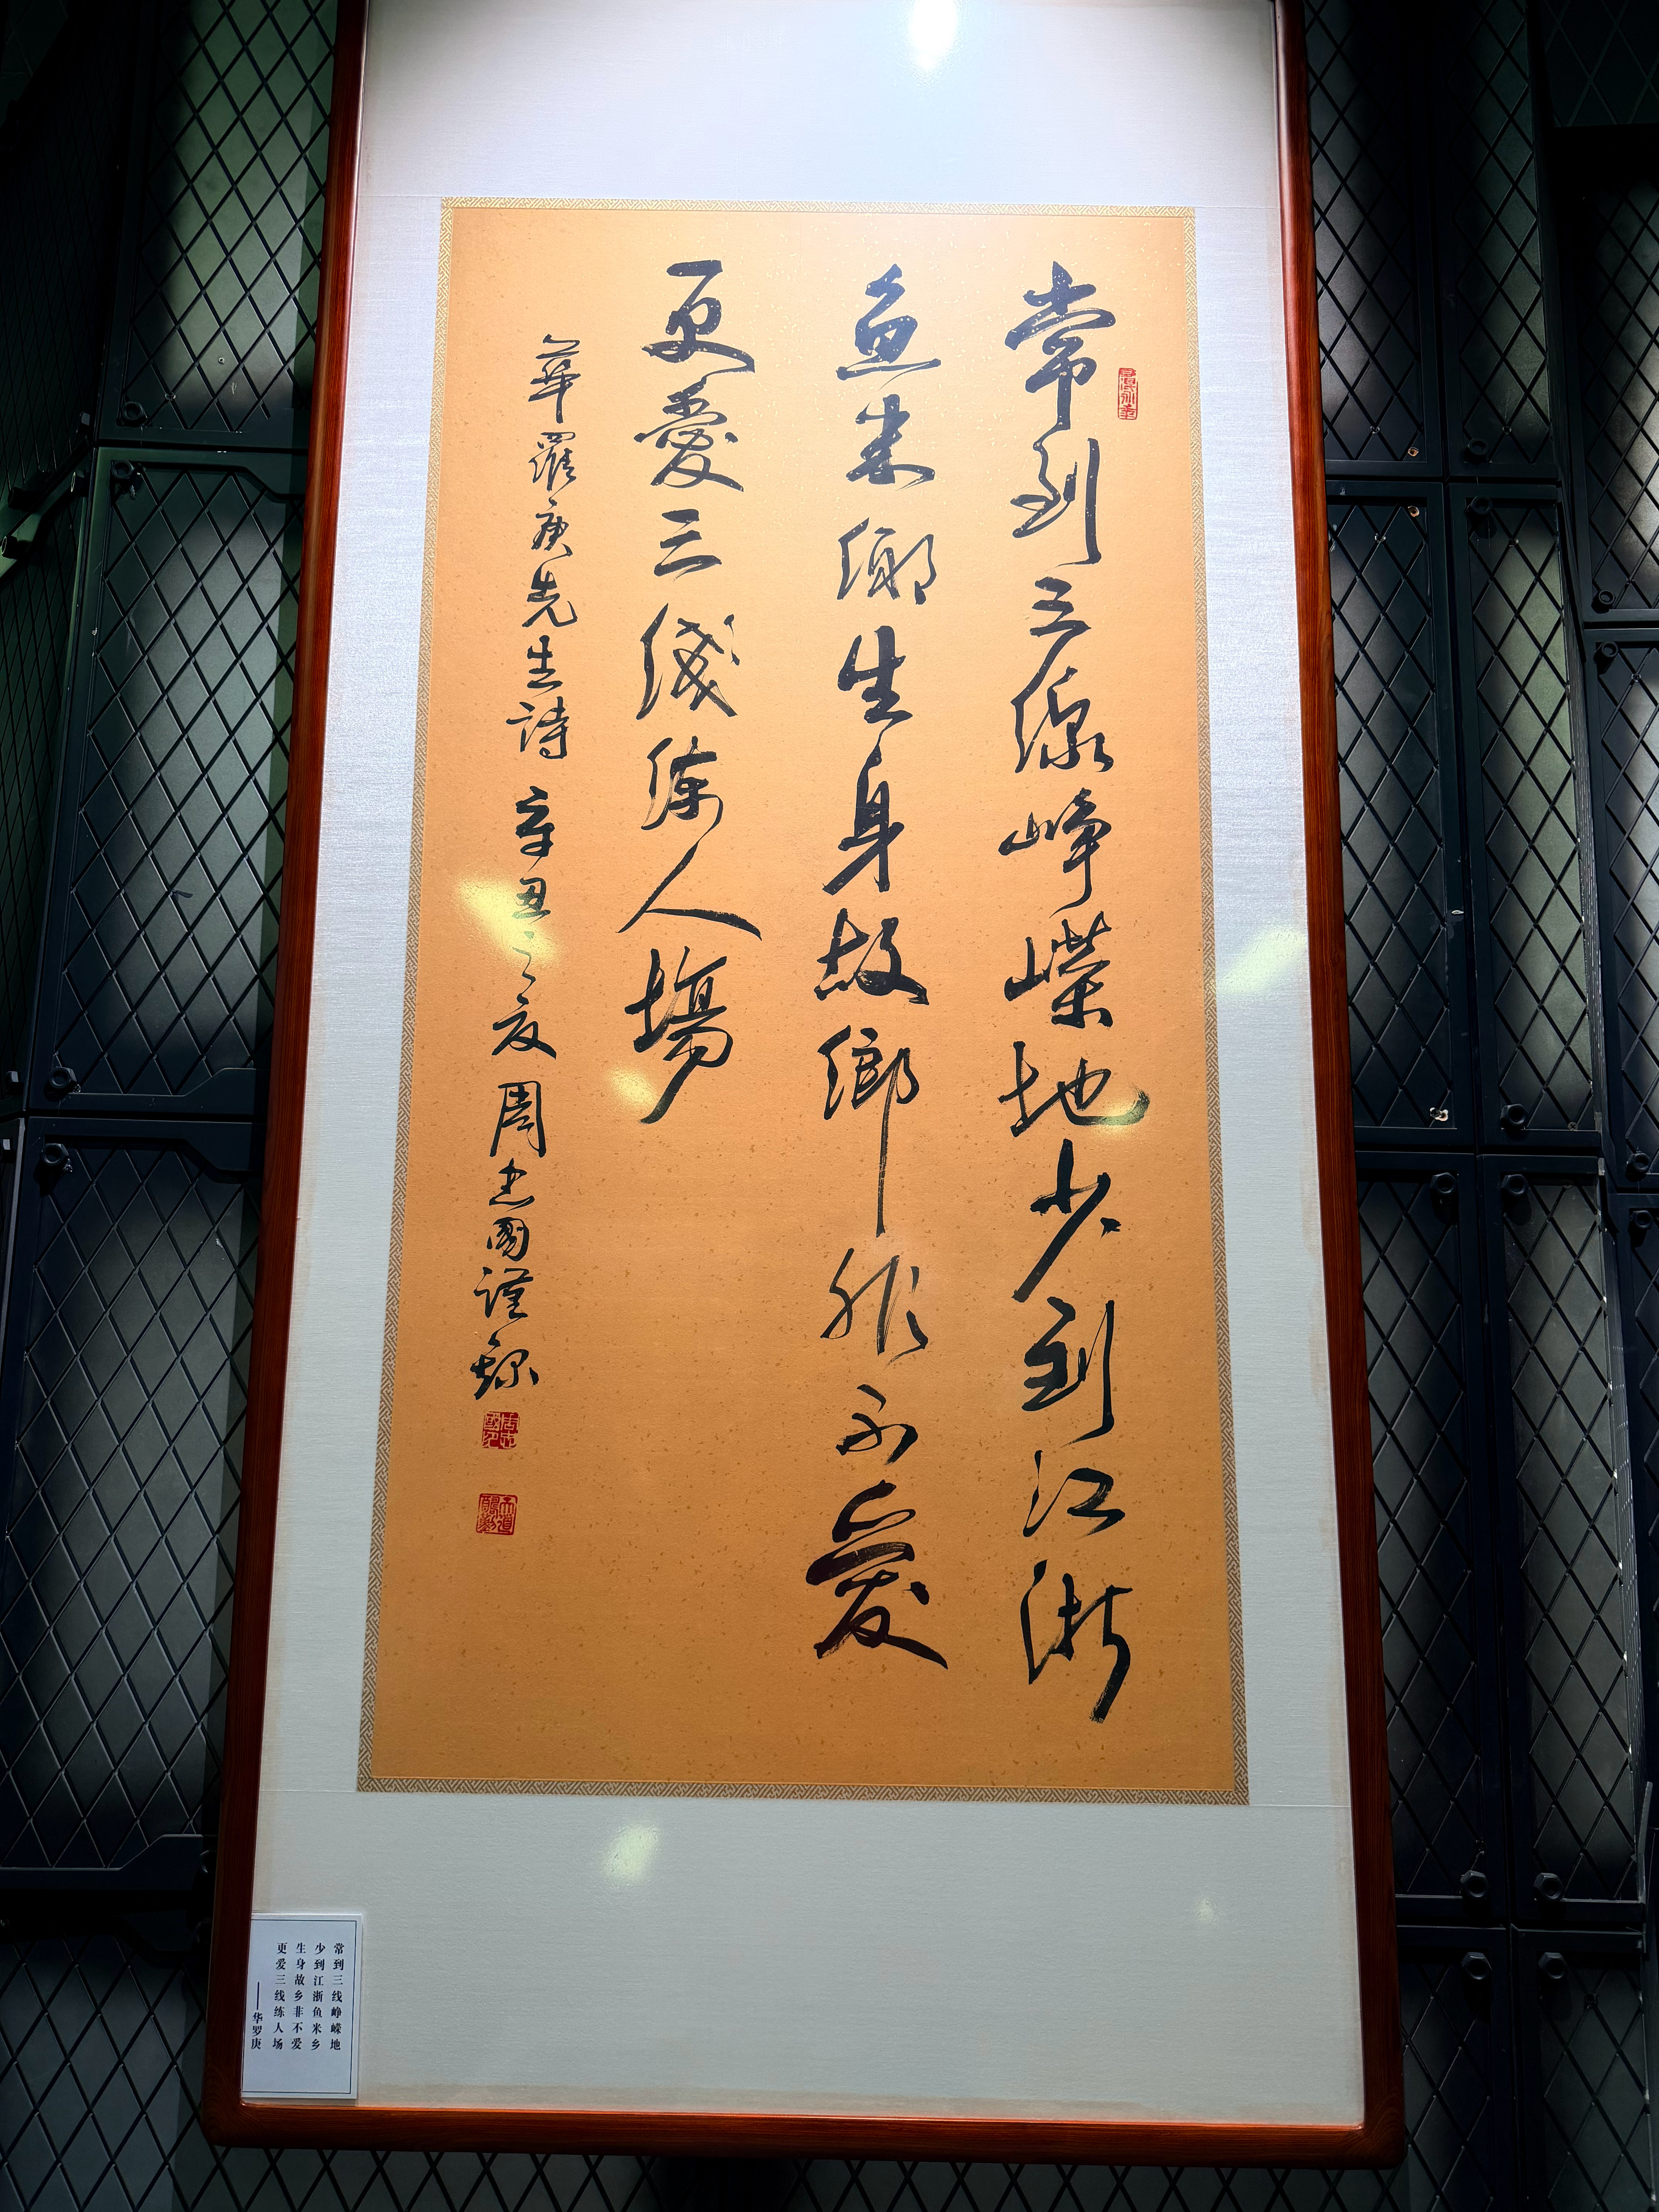 常到三線崢嶸地少到江浙
魚米鄉生身故鄉非不愛
更愛三綫練人場
華羅庚先生詩 辛丑之夏 周志國謹録
常到三线峥嵘地
少到江浙鱼米乡
生身故乡非不爱
更爱三线练人场
——华罗庚